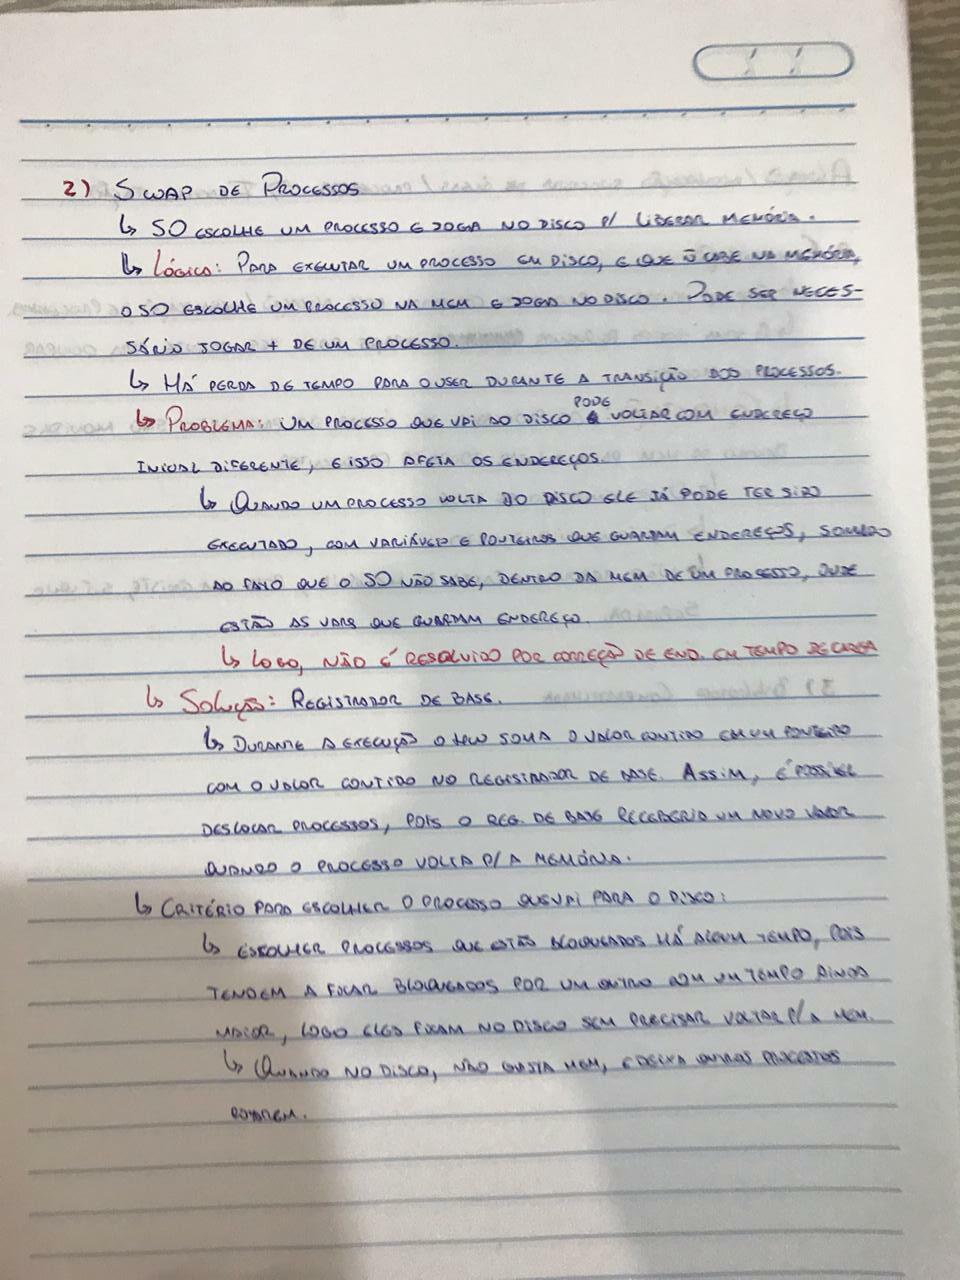 2) SWAP DE PROCESSOS
↳ SO ESCOLHE UM PROCESSO E JOGA NO DISCO P/ LIBERAR MEMÓRIA.
↳ LÓGICA: PARA EXECUTAR UM PROCESSO EM DISCO, E QUE Ñ CABE NA MEMÓRIA,
O SO ESCOLHE UM PROCESSO NA MEM E JOGA NO DISCO. PODE SER NECES-
SÁRIO JOGAR + DE UM PROCESSO.
↳ HÁ PERDA DE TEMPO PARA O USER DURANTE A TRANSIÇÃO DOS PROCESSOS.
↳ PROBLEMA: UM PROCESSO QUE VAI AO DISCO PODE VOLTAR COM ENDEREÇO
INICIAL DIFERENTE, E ISSO AFETA OS ENDEREÇOS.
↳ QUANDO UM PROCESSO VOLTA DO DISCO ELE JÁ PODE TER SIDO
EXECUTADO, COM VARIÁVEIS E PONTEIROS QUE GUARDAM ENDEREÇOS, SOMADO
AO FATO QUE O SO NÃO SABE, DENTRO DA MEM DE UM PROCESSO, ONDE
ESTÃO AS VARS QUE GUARDAM ENDEREÇO.
↳ LOGO, NÃO É RESOLVIDO POR CORREÇÃO DE END. EM TEMPO DE CARGA
↳ SOLUÇÃO: REGISTRADOR DE BASE.
↳ DURANTE A EXECUÇÃO O HW SOMA O VALOR CONTIDO EM UM PONTEIRO
COM O VALOR CONTIDO NO REGISTRADOR DE BASE. ASSIM, É POSSÍVEL
DESLOCAR PROCESSOS, POIS O REG. DE BASE RECEBERIA UM NOVO VALOR
QUANDO O PROCESSO VOLTA P/ A MEMÓRIA.
↳ CRITÉRIO PARA ESCOLHER O PROCESSO QUE VAI PARA O DISCO:
↳ ESCOLHER PROCESSOS QUE ESTÃO BLOQUEADOS HÁ ALGUM TEMPO, POIS
TENDEM A FICAR BLOQUEADOS POR UM UM TEMPO AINDA
MAIOR, LOGO ELES FICAM NO DISCO SEM PRECISAR VOLTAR P/ A MEM.
↳ QUANDO NO DISCO, NÃO GASTA MEM, E DEIXA OUTROS PROCESSOS
RODAREM.